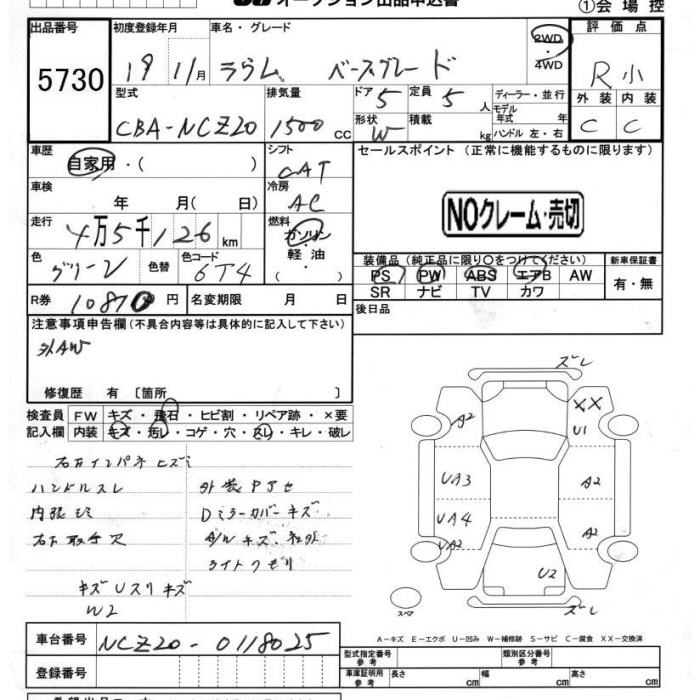 オークション出品申込書
①会場控
出品番号 初度登録年月 車名・グレード 評価点
5730 19 11/月 ラウム ベースグレード 2WD・4WD R小
型式 排気量 ドア 定員 ディーラー・並行 外装 内装
CBA-NCZ20 1500CC 5 5人 モデル年式 年 C C
形状 W 積載 kg ハンドル 左・右
車歴 シフト セールスポイント (正常に機能するものに限ります)
自家用・( ) CAT
車検 冷房
年 月( 日) AC NOクレーム・売切
走行 燃料
4万5千126km ガソリン・軽油・( )
装備品 (純正品に限り○をつけてください) 新車保証書
色 色替 色コード PS PW ABS エアB AW 有・無
グリーン 6T4 SR ナビ TV カワ
R券 10870円 名変期限 月 日 後日品
注意事項申告欄 (不具合内容等は具体的に記入して下さい)
外AW
修復歴 有 〔箇所 〕
検査員記入欄 FW キズ・飛石・ヒビ割・リペア跡・×要
内装 キズ・汚レ・コゲ・穴・スレ・キレ・破レ
右フインパネ ヒズミ
ハンドルスレ 外装Pアセ
内張シミ Dミラーカバーキズ
右下取手欠 A/Wキズ 社外
ライトクモリ
キズUスリキズ
W2
ズレ
A2 XX
U1
UA3 A2
UA4 A2
UA2
U2
スペア ズレ
A-キズ E-エクボ U-凹み W-補修跡 S-サビ C-腐食 XX-交換済
車台番号 NCZ20-0118025
型式指定番号 参考 類別区分番号 参考
登録番号 車庫証明用 参考 長さ cm 幅 cm 高さ cm